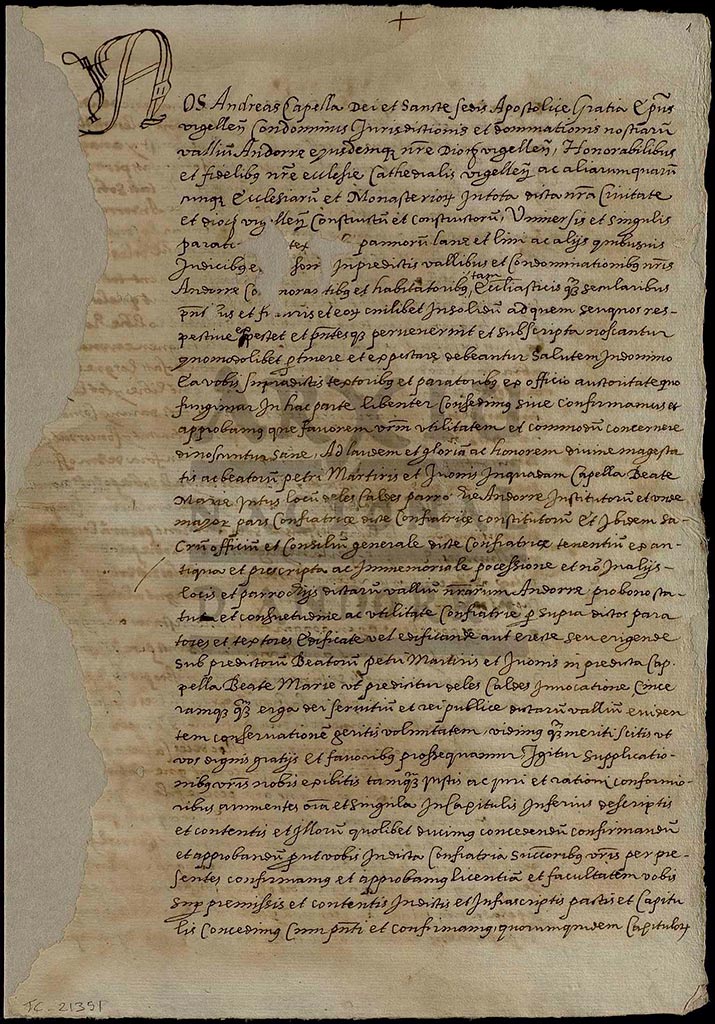 1
NOS Andreas Capella Dei et Sancte sedis Apostolice Gratia Epus
vrgelleñ Condominus Jurisdictionis et dominationis nostrarũ
valliũ Andorre ejusdemq nre Dioc vrgelleñ, Honorabilibus
et fidelibus nre ecclesie Cathedralis vrgelleñ ac aliarumquarũ
cumq Ecclesiarũ et Monasteriorꝝ In tota dicta nra Civitate
et dioc vrg lleñ Constructũ et construetorũ, Vniversis et singulis
parato tex pannorũ lane et lini ac alijs quibusuis
Judicibus In predictis vallibus et Condominationibus nris
Andorre Co morantibus et habitatoribus, tam Ecclesiasticis qz secularibus
pnt us et fu uris et eorꝝ cuilibet Insolidũ ad quem seu quos res-
pective spectet et pntes qz pervenerint et subscripta noscantur
quomodolibet ptinere et expectare debeantur Salutem In domino
Ea vobis supradictis textoribus et paratoribus ex officio auctoritate quo
fungimur In hac parte libenter Concedimus sive confirmamus et
approbamus que favorem vrm vtilitatem et commodũ concernere
dinoscuntur sane, Ad laudem et gloriã ac honorem divine magesta
tis ac beatorũ petri Martiris et Juonis In quadam Capella Beate
Marie Intus locũ deles Caldes parro Andorre Institutorũ et vnde
mayor pars Confratrie dicte Confratrie constitutorũ Et Ibidem sa-
crũ officiũ et Consiliũ generale dicte Confratrie tenentiũ ex an-
tiqua et prescripta ac Immemoriale pocessione et nõ In alijs
locis et parrochijs dictarũ valliũ nrarum Andorre pro bono sta-
tu et consuetudine ac vtilitate Confratrie p supra dictos para
tores et textores Edificate vel edificande aut erecte seu erigende
sub predictorũ Beatorũ petri Martiris et Juonis in predicta Cap-
pella Beate Marie vt predicitur deles Caldes Invocatione Since
ramqz qz erga dei servitiũ et rei publice dictarũ valliũ eviden
tem conservationẽ geritis voluntatem, vidimus qz meriti scitis vt
vos dignis gratijs et favoribus prossequamur Igitur supplicatio-
nibus vris nobis exibitis tamqz justis ac juri et rationi conformio-
ribus annuentes oia et singula In Capitulis Inferius descriptis
et contentis et Illorũ quolibet ducimus concedendũ confirmandũ
et approbandũ put vobis In dicta Confratria Succoribus vris per pre-
sentes confirmamus et approbamus licentiã et facultatem vobis
sup premissis et contentis In dictis et Infrascriptis pactis et Capitu
lis Concedimus Cum pnti et confirmamus, quorumquidem Capitulorꝝ
FC-21391